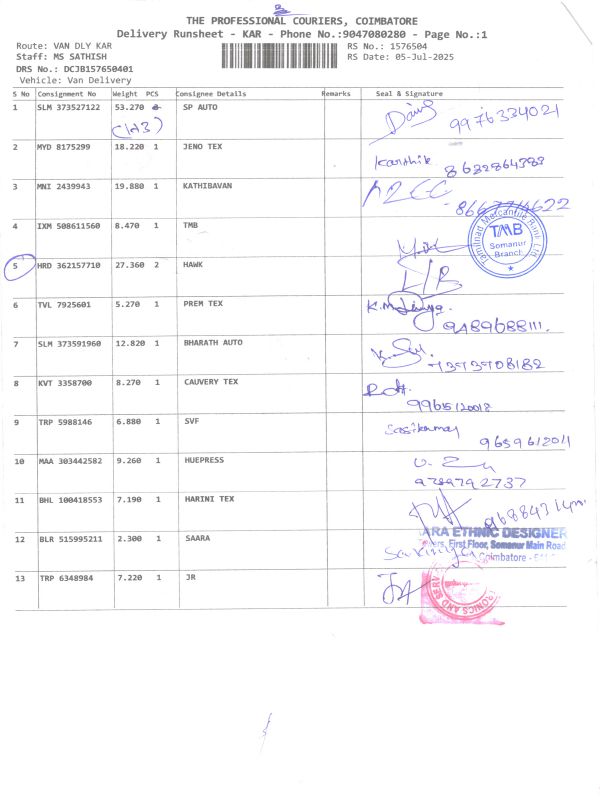 B
THE PROFESSIONAL COURIERS, COIMBATORE
Delivery Runsheet - KAR - Phone No.:9047080280 - Page No.:1
Route: VAN DLY KAR RS No.: 1576504
Staff: MS SATHISH RS Date: 05-Jul-2025
DRS No.: DCJB157650401
Vehicle: Van Delivery
S No Consignment No Weight PCS Consignee Details Remarks Seal & Signature
1 SLM 373527122 53.270 SP AUTO 9976334021
2 MYD 8175299 18.220 1 JENO TEX Karthik
3 MNI 2439943 19.880 1 KATHIBAVAN
4 IXM 508611560 8.470 1 TMB
Tamilnad Mercantile Bank Ltd
TMB
Somanur
Branch
5 HRD 362157710 27.360 2 HAWK
6 TVL 7925601 5.270 1 PREM TEX
9489688111.
7 SLM 373591960 12.820 1 BHARATH AUTO
8 KVT 3358700 8.270 1 CAUVERY TEX
9 TRP 5988146 6.880 1 SVF
10 MAA 303442582 9.260 1 HUEPRESS
9789792737
11 BHL 100418553 7.190 1 HARINI TEX
12 BLR 515995211 2.300 1 SAARA
ARA ETHNIC DESIGNER
First Floor, Somanur Main Road
Coimbatore
13 TRP 6348984 7.220 1 JR